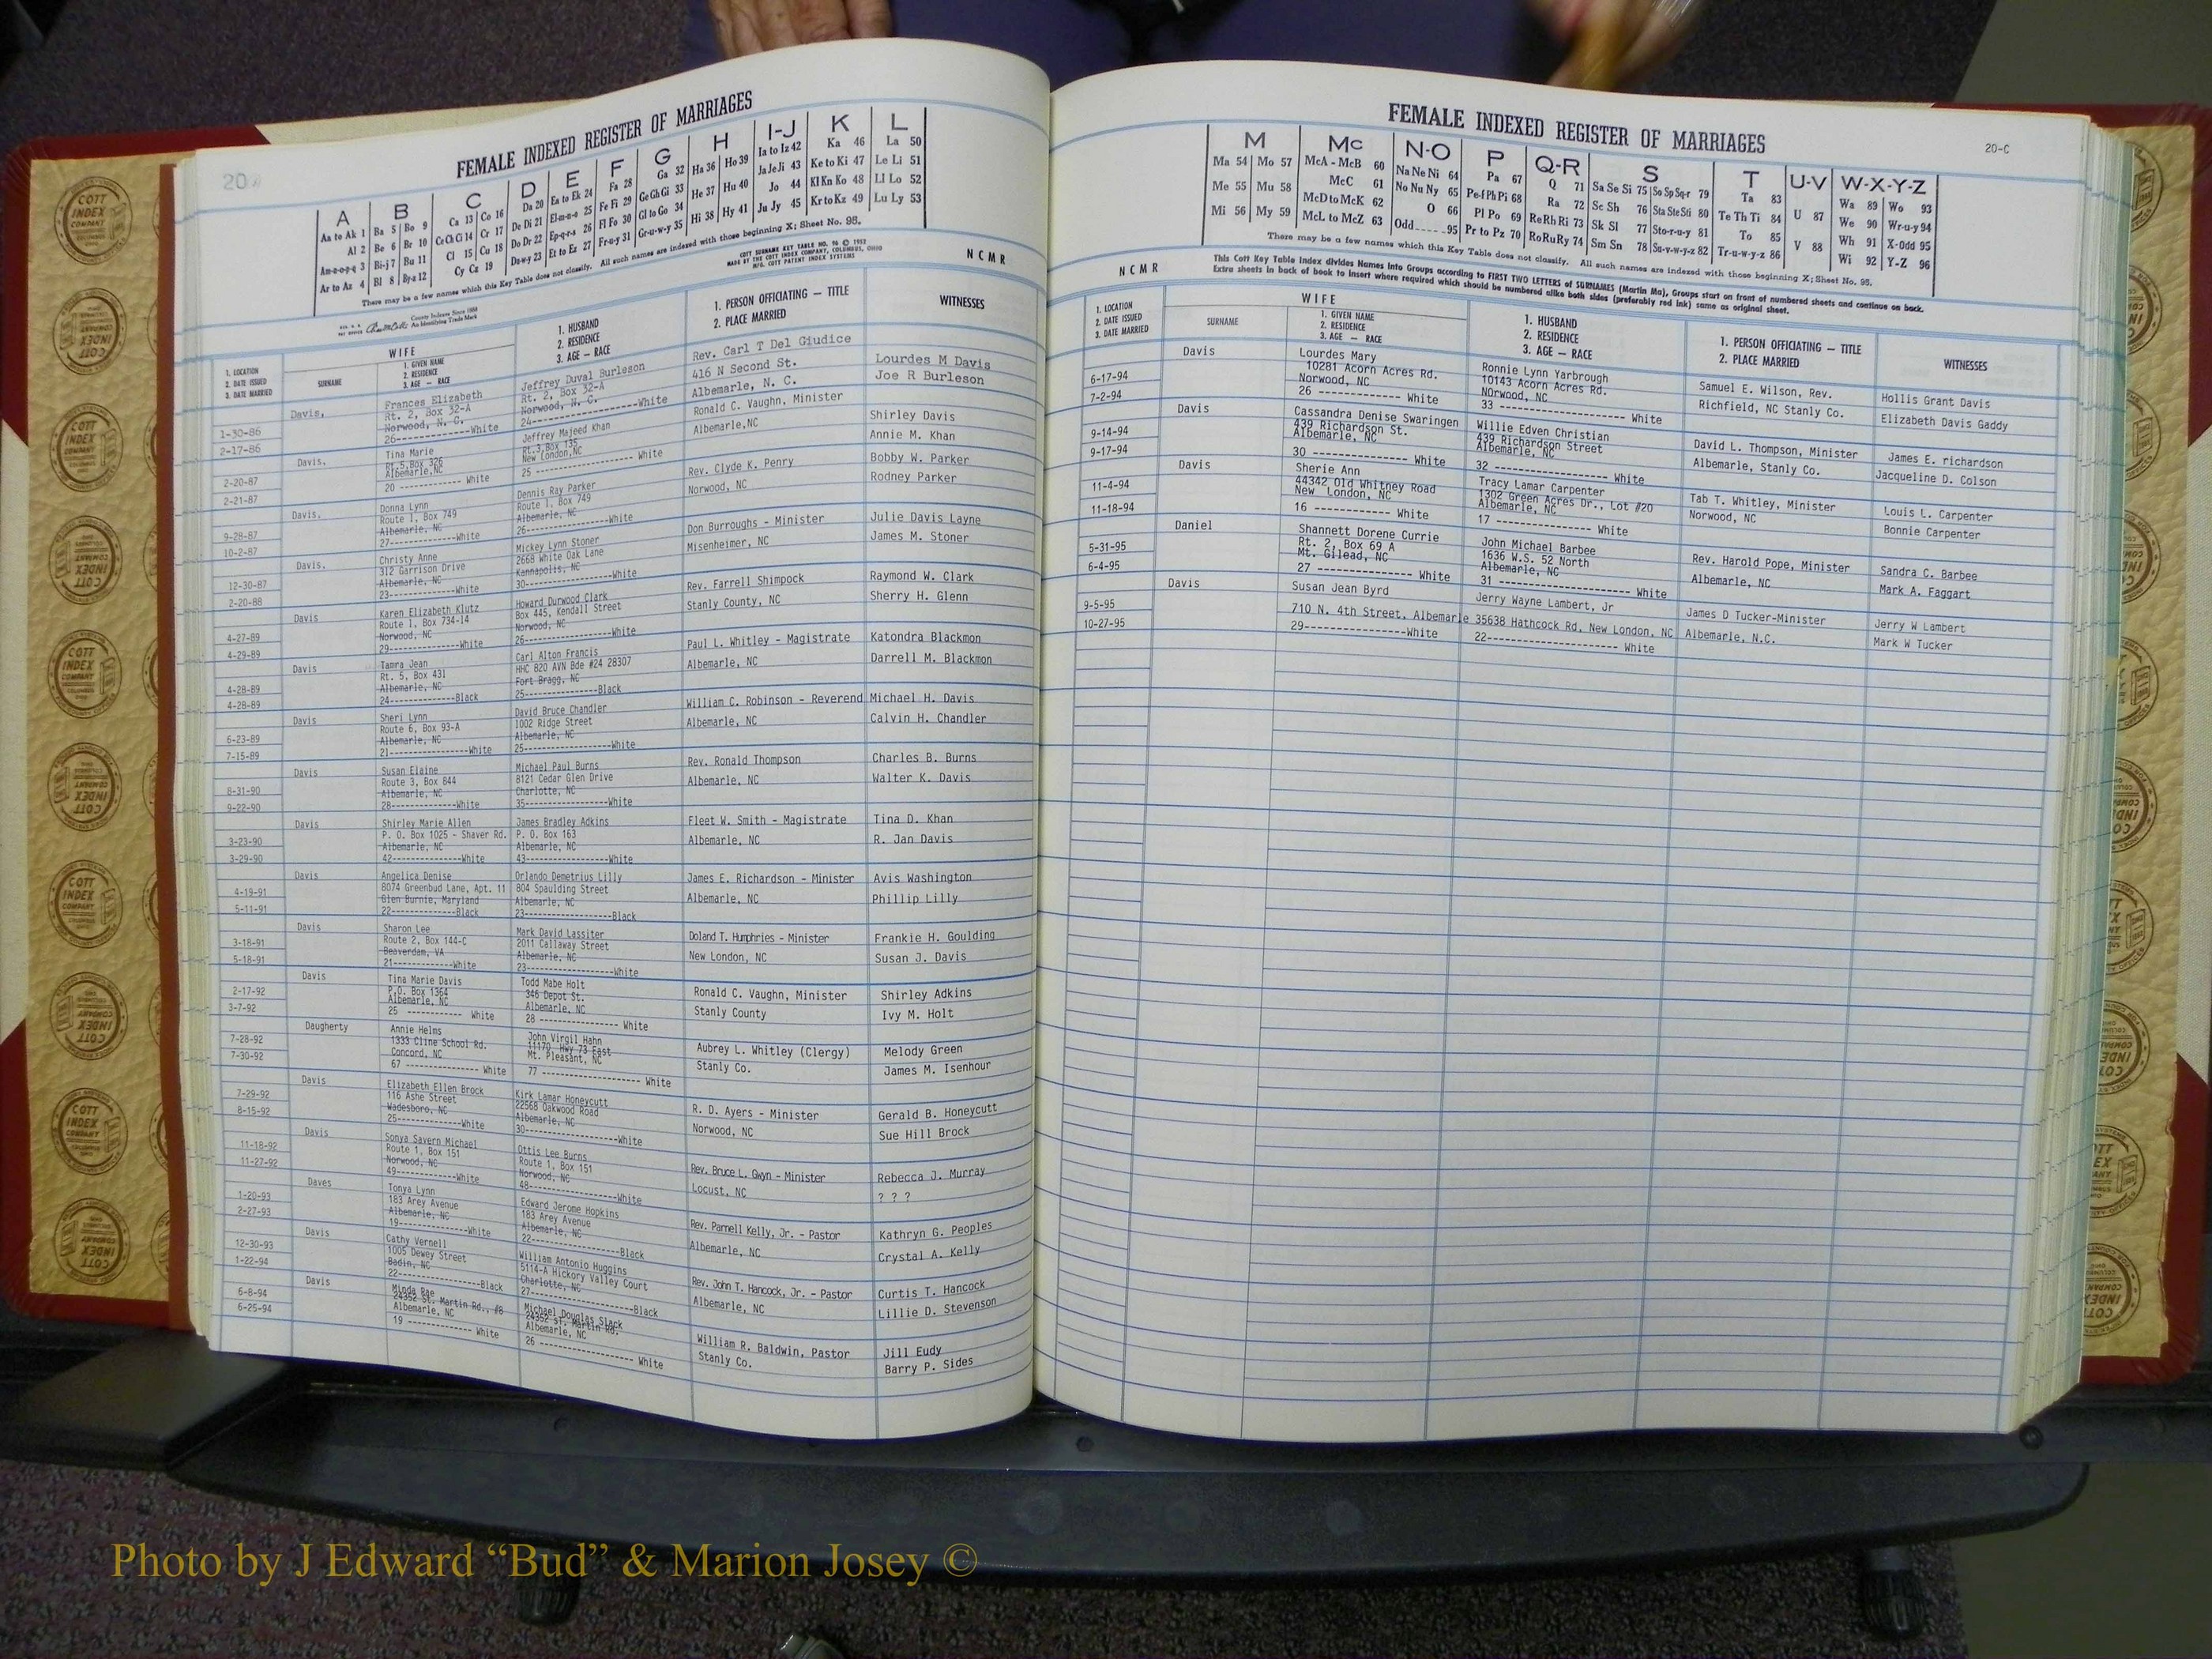 20
FEMALE INDEXED REGISTER OF MARRIAGES
A B C D E F G H I-J K L
Aa to Ak 1 Ba 5 Bo 9 Ca 13 Co 16 Da 20 Ea to Ek 24 Fa 28 Ga 32 Ha 36 Ho 39 Ia to Iz 42 Ka 46 La 50
Al 2 Be 6 Br 10 Ce Ch Ci 14 Cr 17 De Di 21 El-m-n-o 25 Fe Fi 29 Ge Gh Gi 33 He 37 Hu 40 Ja Je Ji 43 Ke to Ki 47 Le Li 51
Am-n-o-p-q 3 Bi-j 7 Bu 11 Cl 15 Cu 18 Do Dr 22 Ep-q-r-s 26 Fl Fo 30 Gl to Go 34 Hi 38 Hy 41 Jo 44 Kl Kn Ko 48 Ll Lo 52
Ar to Az 4 Bl 8 By-z 12 Cy Cz 19 Du-w-y 23 Et to Ez 27 Fr-u-y 31 Gr-u-w-y 35 Ju Jy 45 Kr to Kz 49 Lu Ly 53
There may be a few names which this Key Table does not classify. All such names are indexed with those beginning X; Sheet No. 95.
COTT SURNAME KEY TABLE NO. 96 © 1952
MADE BY THE COTT INDEX COMPANY, COLUMBUS, OHIO
MFG. COTT PATENT INDEX SYSTEMS
County Indexes Since 1888
An Identifying Trade Mark
N C M R
1. LOCATION
2. DATE ISSUED
3. DATE MARRIED
WIFE
SURNAME
1. GIVEN NAME
2. RESIDENCE
3. AGE — RACE
1. HUSBAND
2. RESIDENCE
3. AGE — RACE
1. PERSON OFFICIATING — TITLE
2. PLACE MARRIED
WITNESSES
1-30-86
2-17-86
Davis,
Frances Elizabeth
Rt. 2, Box 32-A
Norwood, N. C.
26------------White
Jeffrey Duval Burleson
Rt. 2, Box 32-A
Norwood, N. C.
24----------------White
Rev. Carl T Del Giudice
416 N Second St.
Albemarle, N. C.
Lourdes M Davis
Joe R Burleson
2-20-87
2-21-87
Davis,
Tina Marie
Rt.5,Box 326
Albemarle,NC
20 ------------ White
Jeffrey Majeed Khan
Rt.3,Box 135
New London,NC
25 ----------------- White
Ronald C. Vaughn, Minister
Albemarle,NC
Shirley Davis
Annie M. Khan
9-28-87
10-2-87
Davis,
Donna Lynn
Route 1, Box 749
Albemarle, NC
27------------White
Dennis Ray Parker
Route 1, Box 749
Albemarle, NC
26----------------White
Rev. Clyde K. Penry
Norwood, NC
Bobby W. Parker
Rodney Parker
12-30-87
2-20-88
Davis,
Christy Anne
312 Garrison Drive
Albemarle, NC
23------------White
Mickey Lynn Stoner
2668 White Oak Lane
Kannapolis, NC
30----------------White
Don Burroughs - Minister
Misenheimer, NC
Julie Davis Layne
James M. Stoner
4-27-89
4-29-89
Davis
Karen Elizabeth Klutz
Route 1, Box 734-14
Norwood, NC
29-------------White
Howard Durwood Clark
Box 445, Kendall Street
Norwood, NC
26----------------White
Rev. Farrell Shimpock
Stanly County, NC
Raymond W. Clark
Sherry H. Glenn
4-28-89
4-28-89
Davis
Tamra Jean
Rt. 5, Box 431
Albemarle, NC
24-------------Black
Carl Alton Francis
HHC 820 AVN Bde #24 28307
Fort Bragg, NC
25-------------Black
Paul L. Whitley - Magistrate
Albemarle, NC
Katondra Blackmon
Darrell M. Blackmon
6-23-89
7-15-89
Davis
Sheri Lynn
Route 6, Box 93-A
Albemarle, NC
21---------------White
David Bruce Chandler
1002 Ridge Street
Albemarle, NC
25----------------White
William C. Robinson - Reverend
Albemarle, NC
Michael H. Davis
Calvin H. Chandler
8-31-90
9-22-90
Davis
Susan Elaine
Route 3, Box 844
Albemarle, NC
28------------White
Michael Paul Burns
8121 Cedar Glen Drive
Charlotte, NC
35----------------White
Rev. Ronald Thompson
Albemarle, NC
Charles B. Burns
Walter K. Davis
3-23-90
3-29-90
Davis
Shirley Marie Allen
P. O. Box 1025 - Shaver Rd.
Albemarle, NC
42-------------White
James Bradley Adkins
P. O. Box 163
Albemarle, NC
43----------------White
Fleet W. Smith - Magistrate
Albemarle, NC
Tina D. Khan
R. Jan Davis
4-19-91
5-11-91
Davis
Angelica Denise
8074 Greenbud Lane, Apt. 11
Glen Burnie, Maryland
22------------Black
Orlando Demetrius Lilly
804 Spaulding Street
Albemarle, NC
23----------------Black
James E. Richardson - Minister
Albemarle, NC
Avis Washington
Phillip Lilly
3-18-91
5-18-91
Davis
Sharon Lee
Route 2, Box 144-C
Beaverdam, VA
21------------White
Mark David Lassiter
2011 Callaway Street
Albemarle, NC
23----------------White
Doland T. Humphries - Minister
New London, NC
Frankie H. Goulding
Susan J. Davis
2-17-92
3-7-92
Davis
Tina Marie Davis
P.O. Box 1364
Albemarle, NC
25 ----------- White
Todd Mabe Holt
346 Depot St.
Albemarle, NC
28 --------------- White
Ronald C. Vaughn, Minister
Stanly County
Shirley Adkins
Ivy M. Holt
7-28-92
7-30-92
Daugherty
Annie Helms
1333 Cline School Rd.
Concord, NC
67 -------------- White
John Virgil Hahn
11170 Hwy 73 East
Mt. Pleasant, NC
77 ------------------- White
Aubrey L. Whitley (Clergy)
Stanly Co.
Melody Green
James M. Isenhour
7-29-92
8-15-92
Davis
Elizabeth Ellen Brock
116 Ashe Street
Wadesboro, NC
25-------------White
Kirk Lamar Honeycutt
22568 Oakwood Road
Albemarle, NC
30----------------White
R. D. Ayers - Minister
Norwood, NC
Gerald B. Honeycutt
Sue Hill Brock
11-18-92
11-27-92
Davis
Sonya Savern Michael
Route 1, Box 151
Norwood, NC
49------------White
Ottis Lee Burns
Route 1, Box 151
Norwood, NC
48----------------White
Rev. Bruce L. Gwyn - Minister
Locust, NC
Rebecca J. Murray
? ? ?
1-20-93
2-27-93
Daves
Tonya Lynn
183 Arey Avenue
Albemarle, NC
19-------------White
Edward Jerome Hopkins
183 Arey Avenue
Albemarle, NC
22----------------Black
Rev. Parnell Kelly, Jr. - Pastor
Albemarle, NC
Kathryn G. Peoples
Crystal A. Kelly
12-30-93
1-22-94
Davis
Cathy Vernell
1005 Dewey Street
Badin, NC
22----------------Black
William Antonio Huggins
5114-A Hickory Valley Court
Charlotte, NC
27-------------------Black
Rev. John T. Hancock, Jr. - Pastor
Albemarle, NC
Curtis T. Hancock
Lillie D. Stevenson
6-8-94
6-25-94
Davis
Minda Rae
24352 St. Martin Rd., #8
Albemarle, NC
19 ------------- White
Michael Douglas Slack
24352 St. Martin Rd.
Albemarle, NC
26 ------------------ White
William R. Baldwin, Pastor
Stanly Co.
Jill Eudy
Barry P. Sides
FEMALE INDEXED REGISTER OF MARRIAGES
20-C
M Mc N-O P Q-R S T U-V W-X-Y-Z
Ma 54 Mo 57 McA - McB 60 Na Ne Ni 64 Pa 67 Q 71 Sa Se Si 75 So Sp Sq-r 79 Ta 83 U 87 Wa 89 Wo 93
Me 55 Mu 58 McC 61 No Nu Ny 65 Pe-f Ph Pi 68 Ra 72 Sc Sh 76 Sta Ste Sti 80 Te Th Ti 84 V 88 We 90 Wr-u-y 94
Mi 56 My 59 McD to McK 62 O 66 Pl Po 69 Re Rh Ri 73 Sk Sl 77 Sto-r-u-y 81 To 85 Wh 91 X-Odd 95
McL to McZ 63 Odd.....95 Pr to Pz 70 Ro Ru Ry 74 Sm Sn 78 Su-v-w-y-z 82 Tr-u-w-y-z 86 Wi 92 Y-Z 96
There may be a few names which this Key Table does not classify. All such names are indexed with those beginning X; Sheet No. 95.
This Cott Key Table Index divides Names into Groups according to FIRST TWO LETTERS of SURNAMES (Martin Ma), Groups start on front of numbered sheets and continue on back.
Extra sheets in back of book to insert where required which should be numbered alike both sides (preferably red ink) same as original sheet.
N C M R
1. LOCATION
2. DATE ISSUED
3. DATE MARRIED
WIFE
SURNAME
1. GIVEN NAME
2. RESIDENCE
3. AGE — RACE
1. HUSBAND
2. RESIDENCE
3. AGE — RACE
1. PERSON OFFICIATING — TITLE
2. PLACE MARRIED
WITNESSES
6-17-94
7-2-94
Davis
Lourdes Mary
10281 Acorn Acres Rd.
Norwood, NC
26 -------------- White
Ronnie Lynn Yarbrough
10143 Acorn Acres Rd.
NOrwood, NC
33 --------------------- White
Samuel E. Wilson, Rev.
Richfield, NC Stanly Co.
Hollis Grant Davis
Elizabeth Davis Gaddy
9-14-94
9-17-94
Davis
Cassandra Denise Swaringen
439 Richardson St.
Albemarle, NC
30 --------------- White
Willie Edven Christian
439 Richardson Street
Albemarle, NC
32 -------------------- White
David L. Thompson, Minister
Albemarle, Stanly Co.
James E. richardson
Jacqueline D. Colson
11-4-94
11-18-94
Davis
Sherie Ann
44342 Old Whitney Road
New London, NC
16 ------------ White
Tracy Lamar Carpenter
1302 Green Acres Dr., Lot #20
Albemarle, NC
17 ---------------- White
Tab T. Whitley, Minister
Norwood, NC
Louis L. Carpenter
Bonnie Carpenter
5-31-95
6-4-95
Daniel
Shannett Dorene Currie
Rt. 2, Box 69 A
Mt. Gilead, NC
27 ---------------- White
John Michael Barbee
1636 W.S. 52 North
Albemarle, NC
31 ---------------------- White
Rev. Harold Pope, Minister
Albemarle, NC
Sandra C. Barbee
Mark A. Faggart
9-5-95
10-27-95
Davis
Susan Jean Byrd
710 N. 4th Street, Albemarle
29-----------------White
Jerry Wayne Lambert, Jr
35638 Hathcock Rd, New London, NC
22---------------------- White
James D Tucker-Minister
Albemarle, N.C.
Jerry W Lambert
Mark W Tucker
COTT
INDEX
COMPANY
Photo by J Edward “Bud” & Marion Josey ©